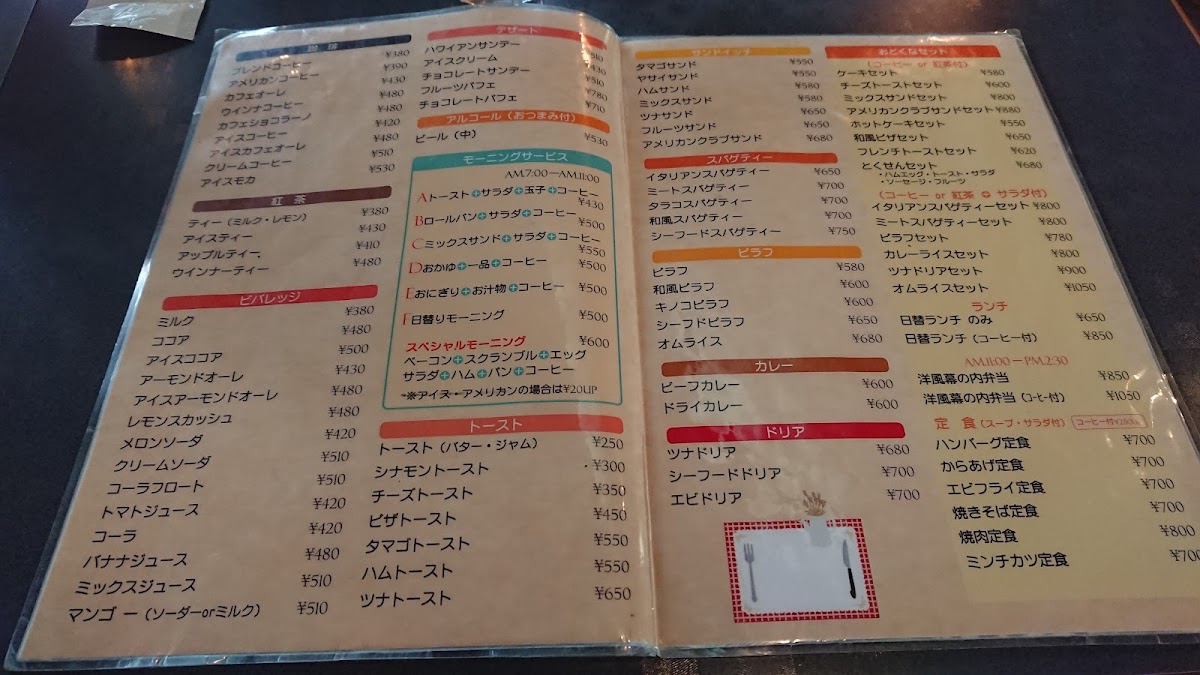 珈琲
ブレンドコーヒー ¥380
アメリカンコーヒー ¥390
カフェオーレ ¥430
ウインナコーヒー ¥480
カフェショコラーノ ¥480
アイスコーヒー ¥420
アイスカフェオーレ ¥480
クリームコーヒー ¥510
アイスモカ ¥530
紅茶
ティー（ミルク・レモン） ¥380
アイスティー ¥430
アップルティー ¥410
ウインナーティー ¥480
ビバレッジ
ミルク ¥380
ココア ¥480
アイスココア ¥500
アーモンドオーレ ¥430
アイスアーモンドオーレ ¥480
レモンスカッシュ ¥480
メロンソーダ ¥420
クリームソーダ ¥510
コーラフロート ¥510
トマトジュース ¥420
コーラ ¥420
バナナジュース ¥480
ミックスジュース ¥510
マンゴー（ソーダーorミルク） ¥510
デザート
ハワイアンサンデー ¥510
アイスクリーム ¥430
チョコレートサンデー ¥510
フルーツパフェ ¥780
チョコレートパフェ ¥710
アルコール（おつまみ付）
ビール（中） ¥530
モーニングサービス
AM.7:00—AM.11:00
Aトースト+サラダ+玉子+コーヒー
¥430
Bロールパン+サラダ+コーヒー
¥500
Cミックスサンド+サラダ+コーヒー
¥550
Dおかゆ+一品+コーヒー ¥500
Eおにぎり+お汁物+コーヒー ¥500
F日替りモーニング ¥500
スペシャルモーニング ¥600
ベーコン+スクランブル+エッグ
サラダ+ハム+パン+コーヒー
※アイス・アメリカンの場合は¥20UP
トースト
トースト（バター・ジャム） ¥250
シナモントースト ¥300
チーズトースト ¥350
ピザトースト ¥450
タマゴトースト ¥550
ハムトースト ¥550
ツナトースト ¥650
サンドイッチ
タマゴサンド ¥550
ヤサイサンド ¥550
ハムサンド ¥580
ミックスサンド ¥580
ツナサンド ¥650
フルーツサンド ¥650
アメリカンクラブサンド ¥680
スパゲティー
イタリアンスパゲティー ¥650
ミートスパゲティー ¥700
タラコスパゲティー ¥700
和風スパゲティー ¥700
シーフードスパゲティー ¥750
ピラフ
ピラフ ¥580
和風ピラフ ¥600
キノコピラフ ¥600
シーフドピラフ ¥650
オムライス ¥680
カレー
ビーフカレー ¥600
ドライカレー ¥600
ドリア
ツナドリア ¥680
シーフードドリア ¥700
エビドリア ¥700
おとくなセット
（コーヒー or 紅茶付）
ケーキセット ¥580
チーズトーストセット ¥600
ミックスサンドセット ¥800
アメリカンクラブサンドセット ¥880
ホットケーキセット ¥550
和風ピザセット ¥650
フレンチトーストセット ¥620
とくせんセット ¥680
・ハムエッグ・トースト・サラダ
・ソーセージ・フルーツ
（コーヒー or 紅茶 + サラダ付）
イタリアンスパゲティーセット ¥800
ミートスパゲティーセット ¥800
ピラフセット ¥780
カレーライスセット ¥800
ツナドリアセット ¥900
オムライスセット ¥1050
ランチ
日替ランチ のみ ¥650
日替ランチ（コーヒー付） ¥850
AM.11:00—PM.2:30
洋風幕の内弁当 ¥850
洋風幕の内弁当（コーヒー付） ¥1050
定食（スープ・サラダ付） コーヒー付¥200増
ハンバーグ定食 ¥700
からあげ定食 ¥700
エビフライ定食 ¥700
焼きそば定食 ¥700
焼肉定食 ¥800
ミンチカツ定食 ¥700